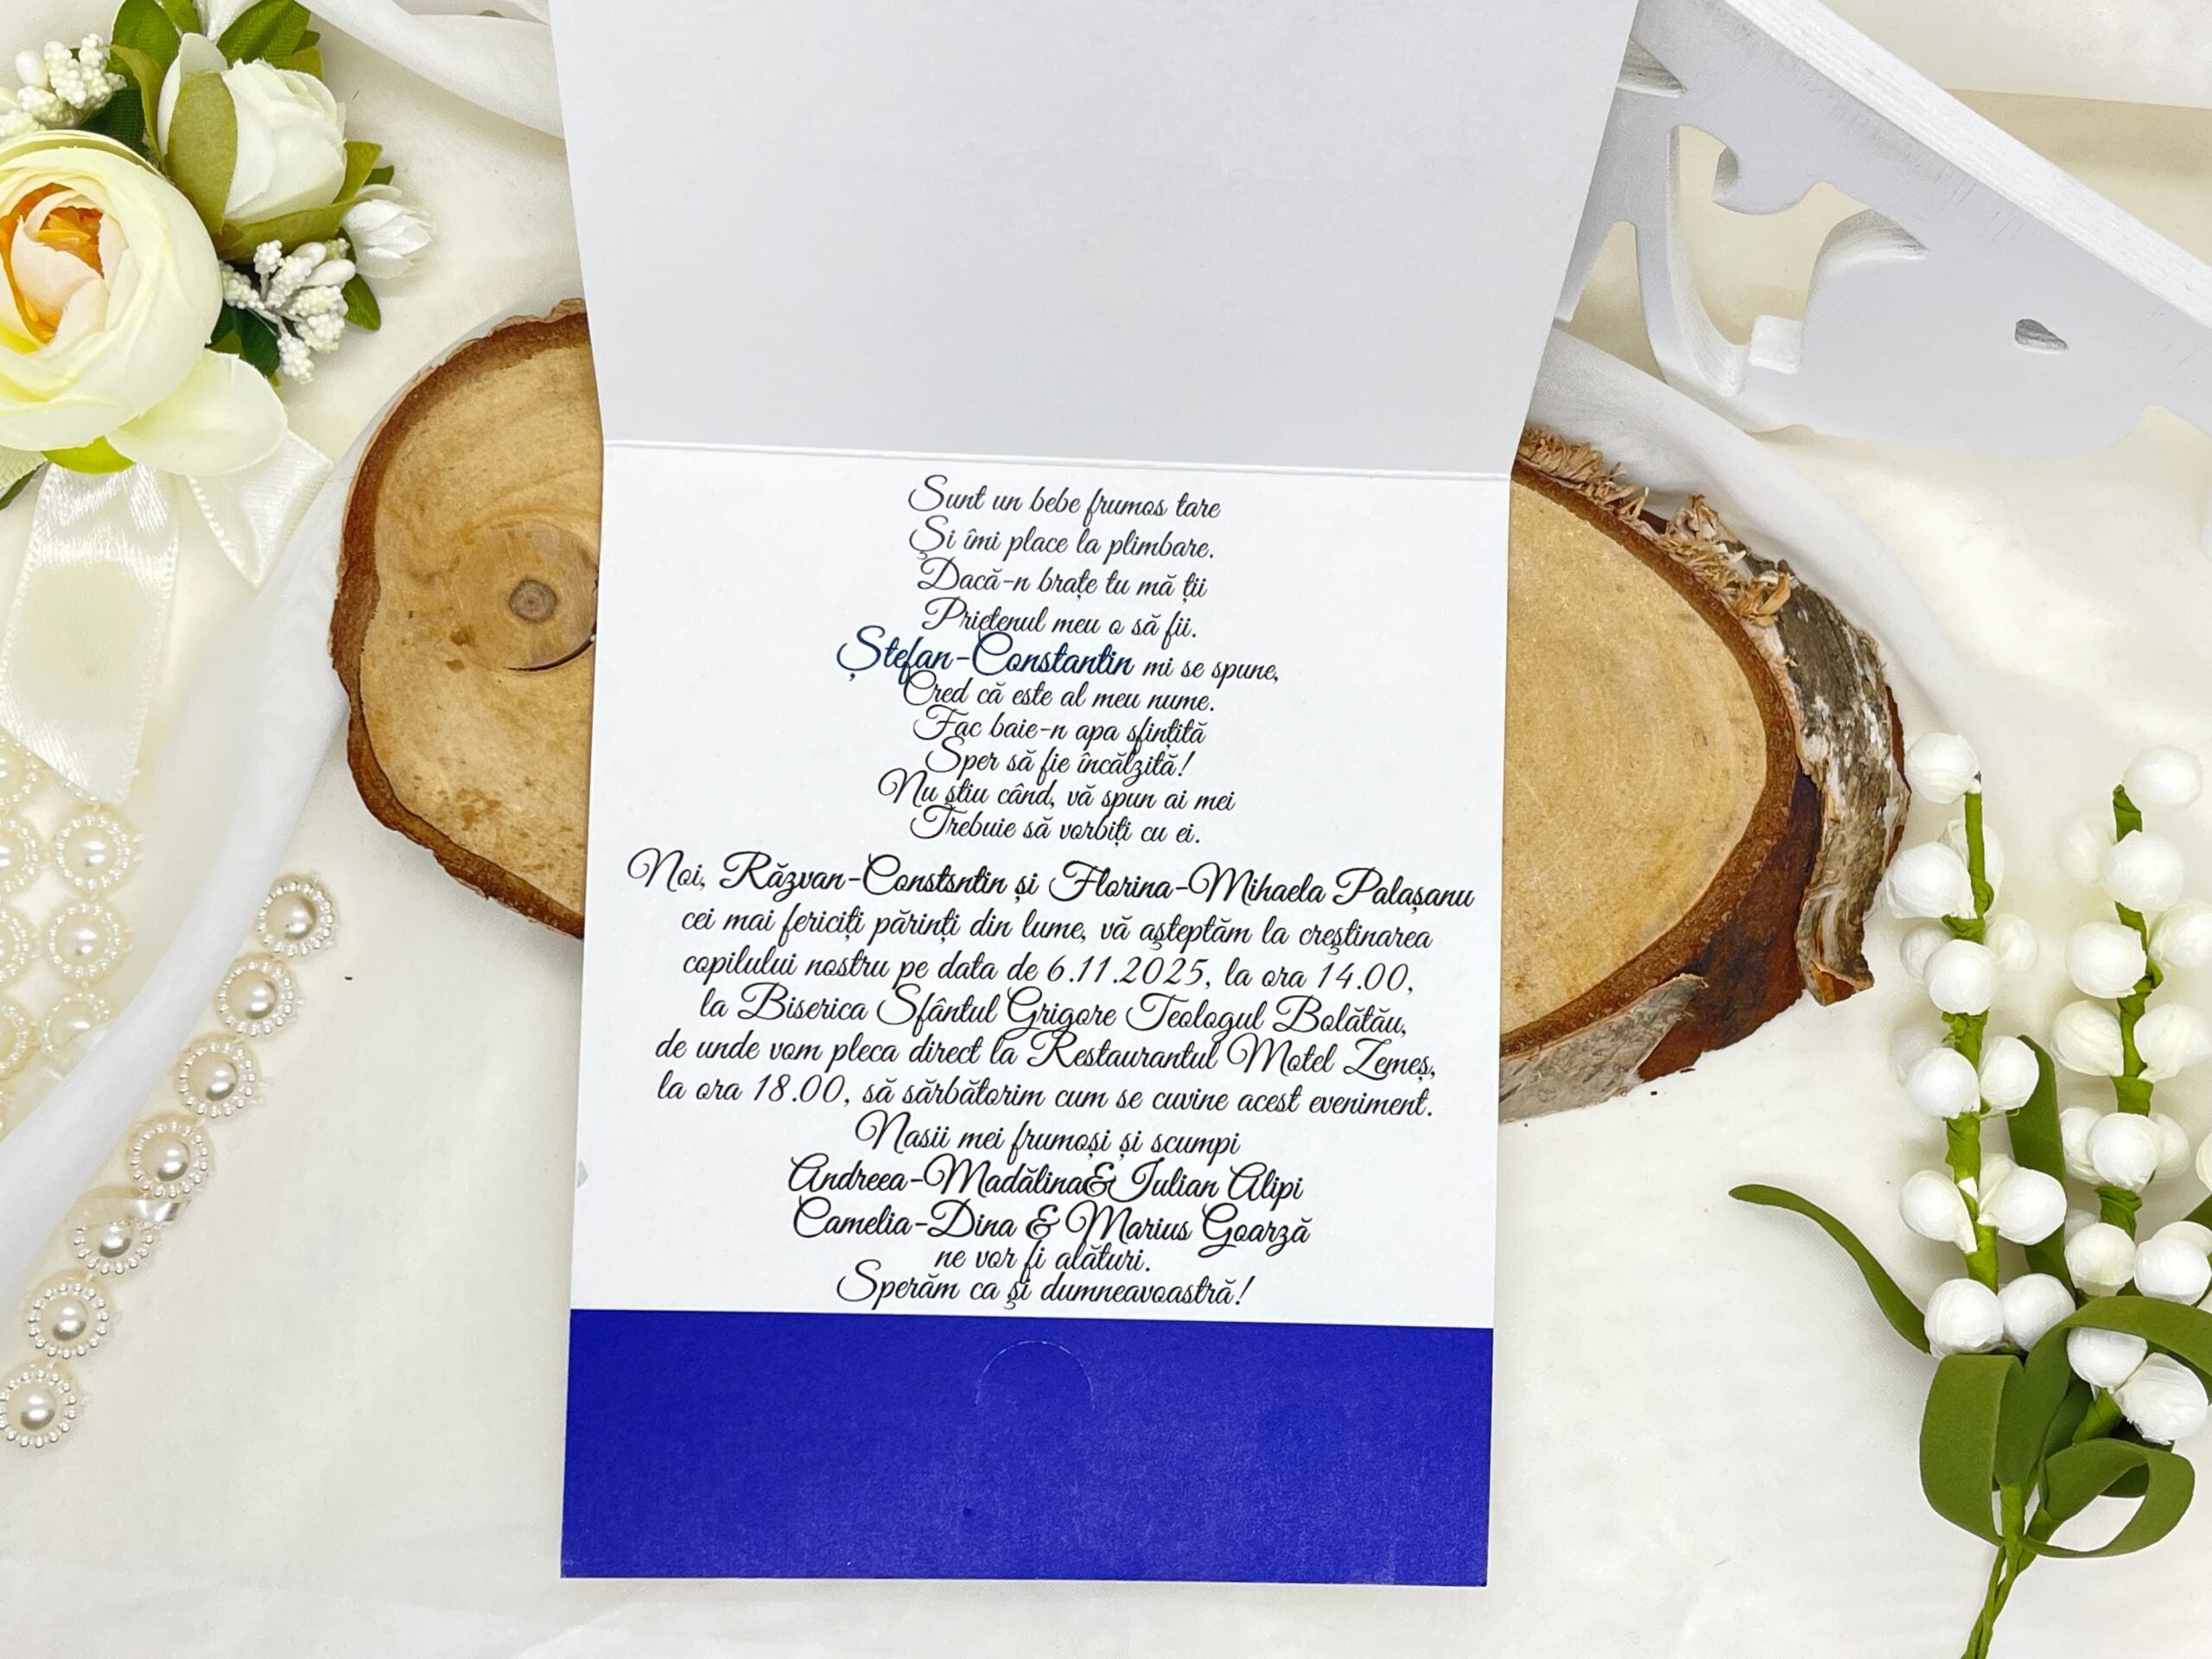 Sunt un bebe frumos tare
Și îmi place la plimbare.
Dacă-n brațe tu mă ții
Prietenul meu o să fii.
Ștefan-Constantin mi se spune,
Cred că este al meu nume.
Fac baie-n apa sfințită
Sper să fie încălzită!
Nu știu când, vă spun ai mei
Trebuie să vorbiți cu ei.
Noi, Răzvan-Constsntin și Florina-Mihaela Palașanu
cei mai fericiți părinți din lume, vă așteptăm la creștinarea
copilului nostru pe data de 6.11.2025, la ora 14.00,
la Biserica Sfântul Grigore Teologul Bolătău,
de unde vom pleca direct la Restaurantul Motel Zemeș,
la ora 18.00, să sărbătorim cum se cuvine acest eveniment.
Nasii mei frumoși și scumpi
Andreea-Madălina&Iulian Alipi
Camelia-Dina & Marius Goarză
ne vor fi alături.
Sperăm ca și dumneavoastră!